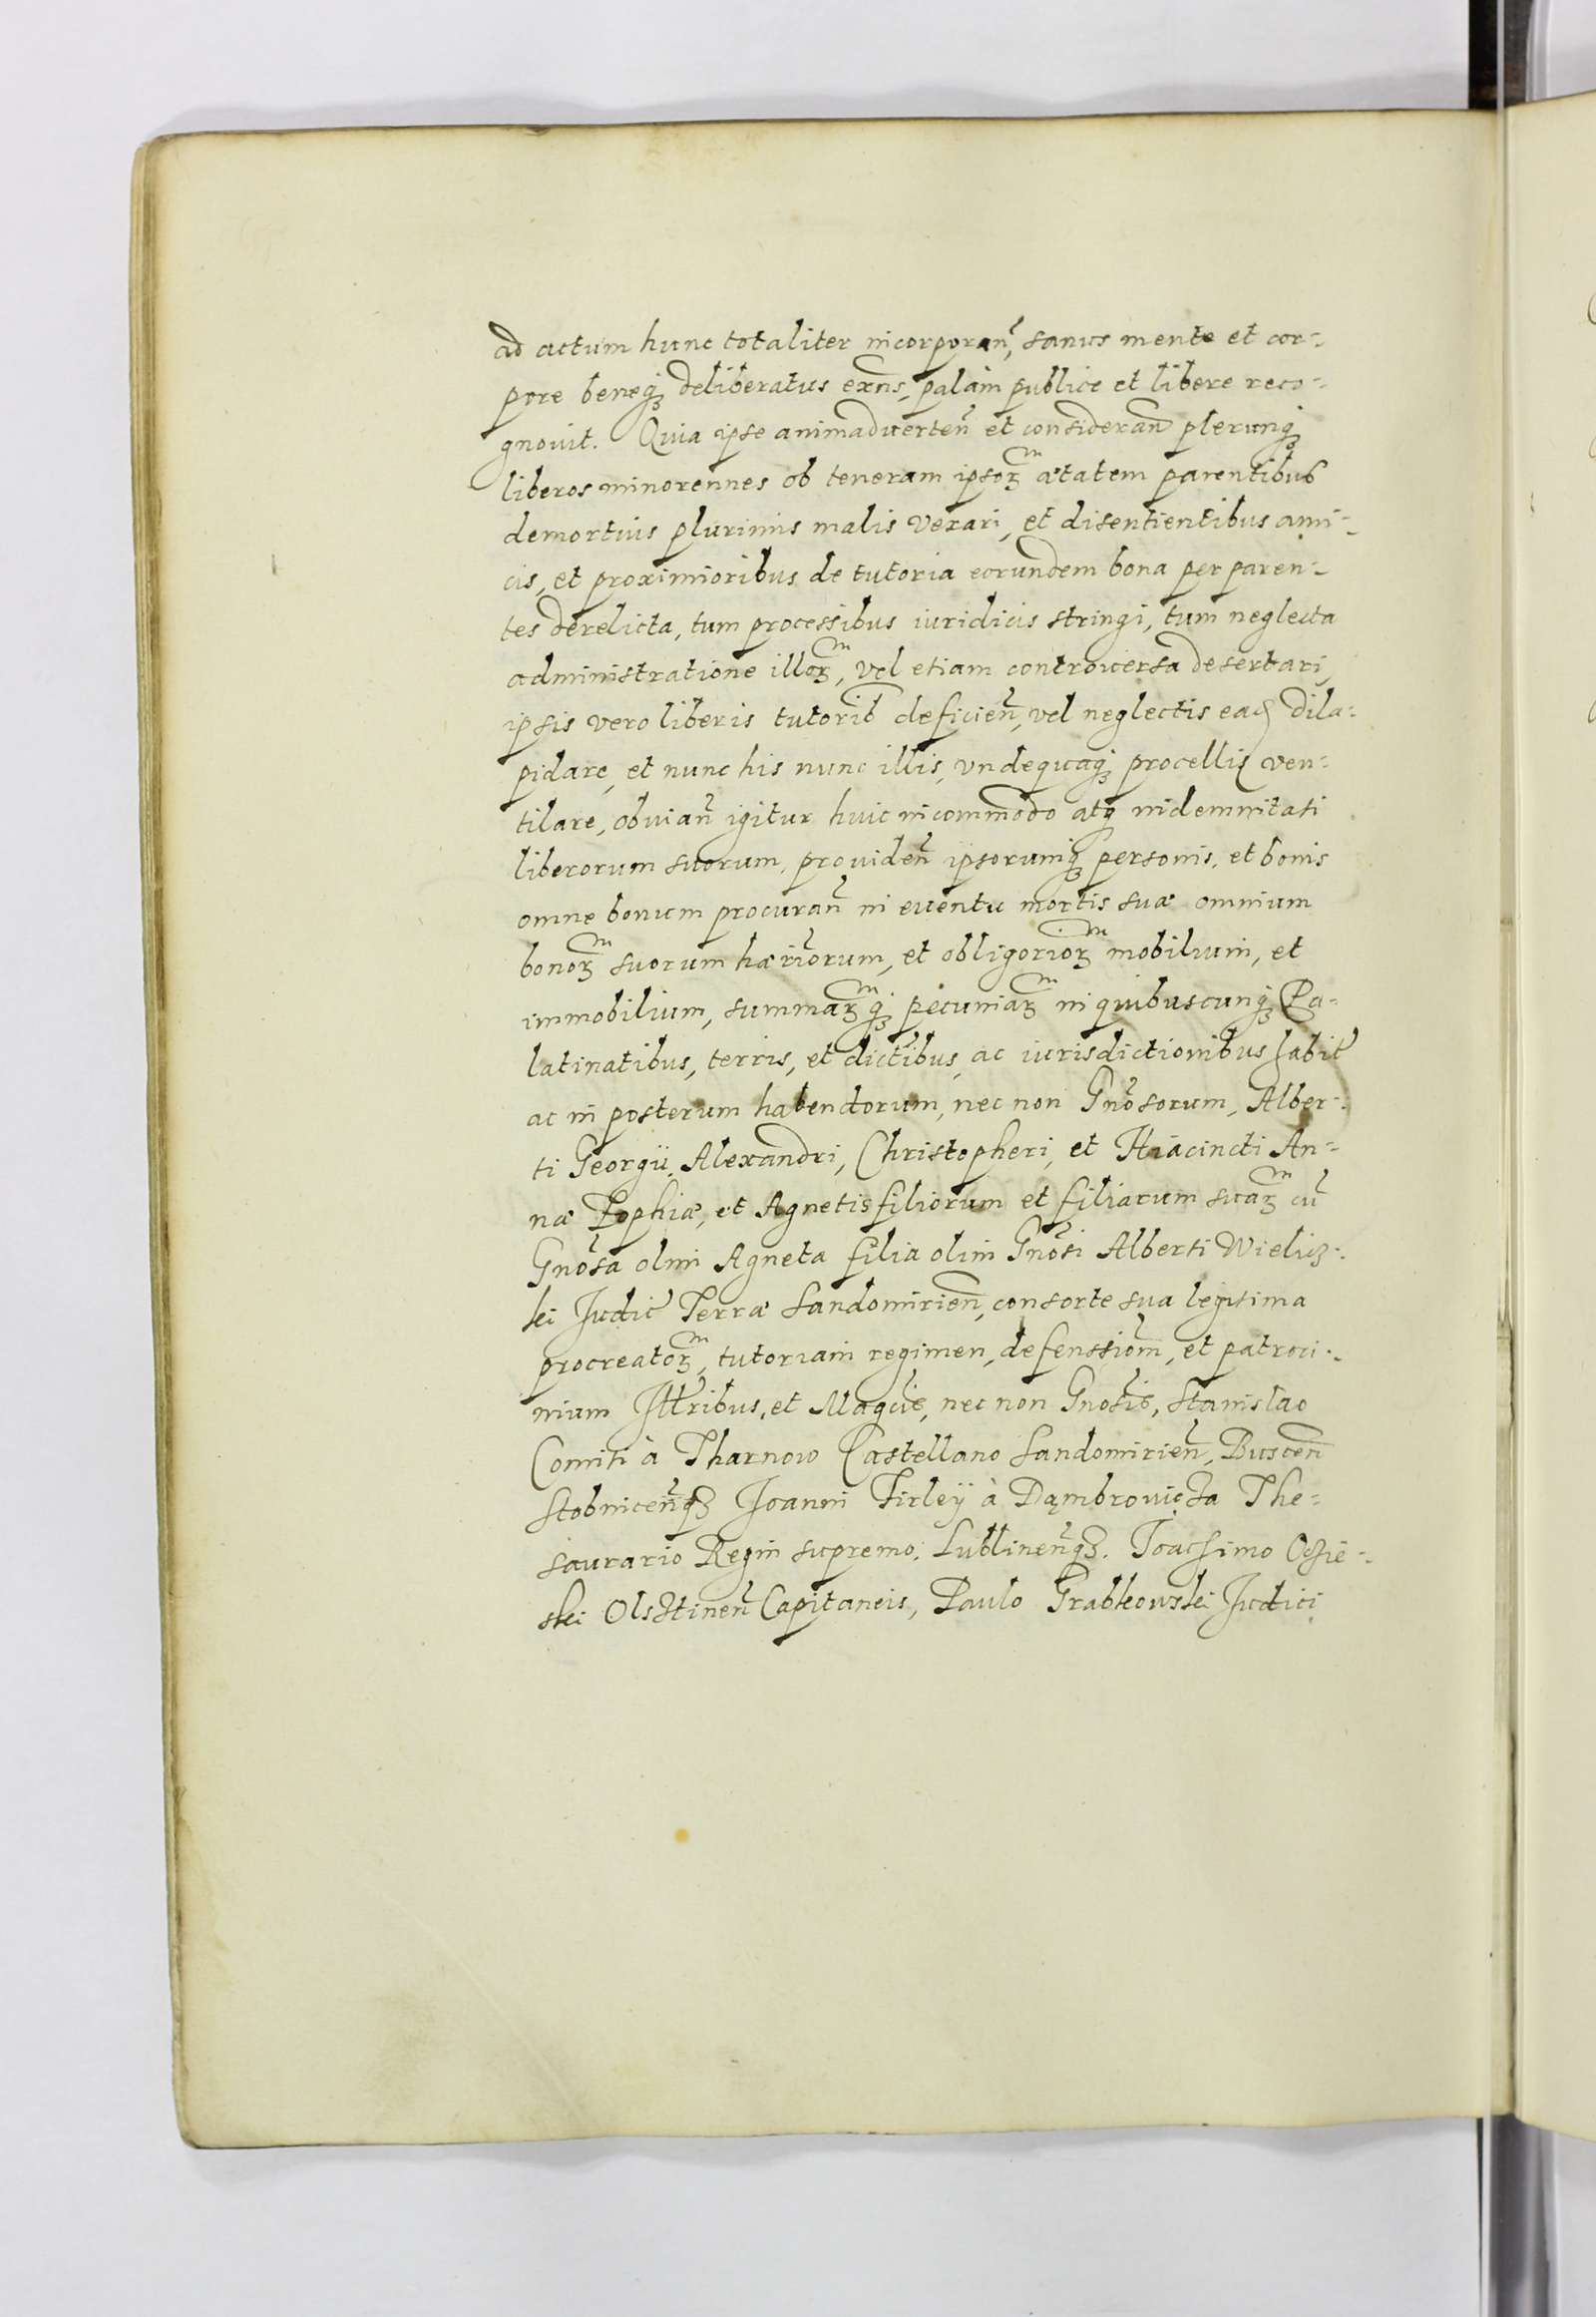 ad actum hunc totaliter incorporan̄, sanus mente et cor-
pore beneq₃ deliberatus exn̄s, palam publice et libere reco-
gnouit. Quia ipse animaduerten̄ et consideran̄ plerunq₃
liberos minorennes ob teneram ipsoꝝ ætatem parentibus
demortuis plurimis malis vexari, et disentientibus ami-
cis, et proximioribus de tutoria eorundem bona per paren-
tes derelicta, tum processibus iuridicis stringi, tum neglecta
administratione illoꝝ, vel etiam controuersa desertari,
ipsis vero liberis tutorib deficien̄, vel neglectis ea dila-
pidare, et nunc his nunc illis, vndequaq₃ procellis ven-
tilare, obuian̄ igitur huic incommodo atq₃ indemnitati
liberorum suorum, prouiden̄ ipsorumq₃ personis, et bonis
omne bonum procuran̄ in euentu mortis suæ omnium
bonoꝝ suorum hæri̅orum, et obligorioꝝ mobilium, et
immobilium, summaꝝq₃ pecuniaꝝ in quibuscunq₃ Pa-
latinatibus, terris, et dicti̅bus, ac iurisdictionibus habit̄
ac in posterum habendorum, nec non Gn̄osorum, Alber-
ti Georgÿ, Alexandri, Christopheri, et Hiacincti An-
næ Zophiæ, et Agnetis filiorum et filiarum suaꝝ cū
Gn̄osa olim Agneta filia olim Gn̄osi Alberti Wielicz-
ki Judic̄ Terræ Sandomirien̄, consorte sua legitima
procreatoꝝ, tutoriam regimen, defenssiōm, et patroci-
nium Ill̄ribus, et Magc̄is, nec non Gnosis̄, Stanislao
Comiti à Tharnow Castellano Sandomirien̄, Buscen̄
Stobnicen̄q₃ Joanni Firleÿ à Dąmbrowicza The-
saurario Regni supremo, Lublinen̄q₃. Joachimo Ocie-
ski Olsztinen̄ Capitaneis, Paulo Grabkowski Judici